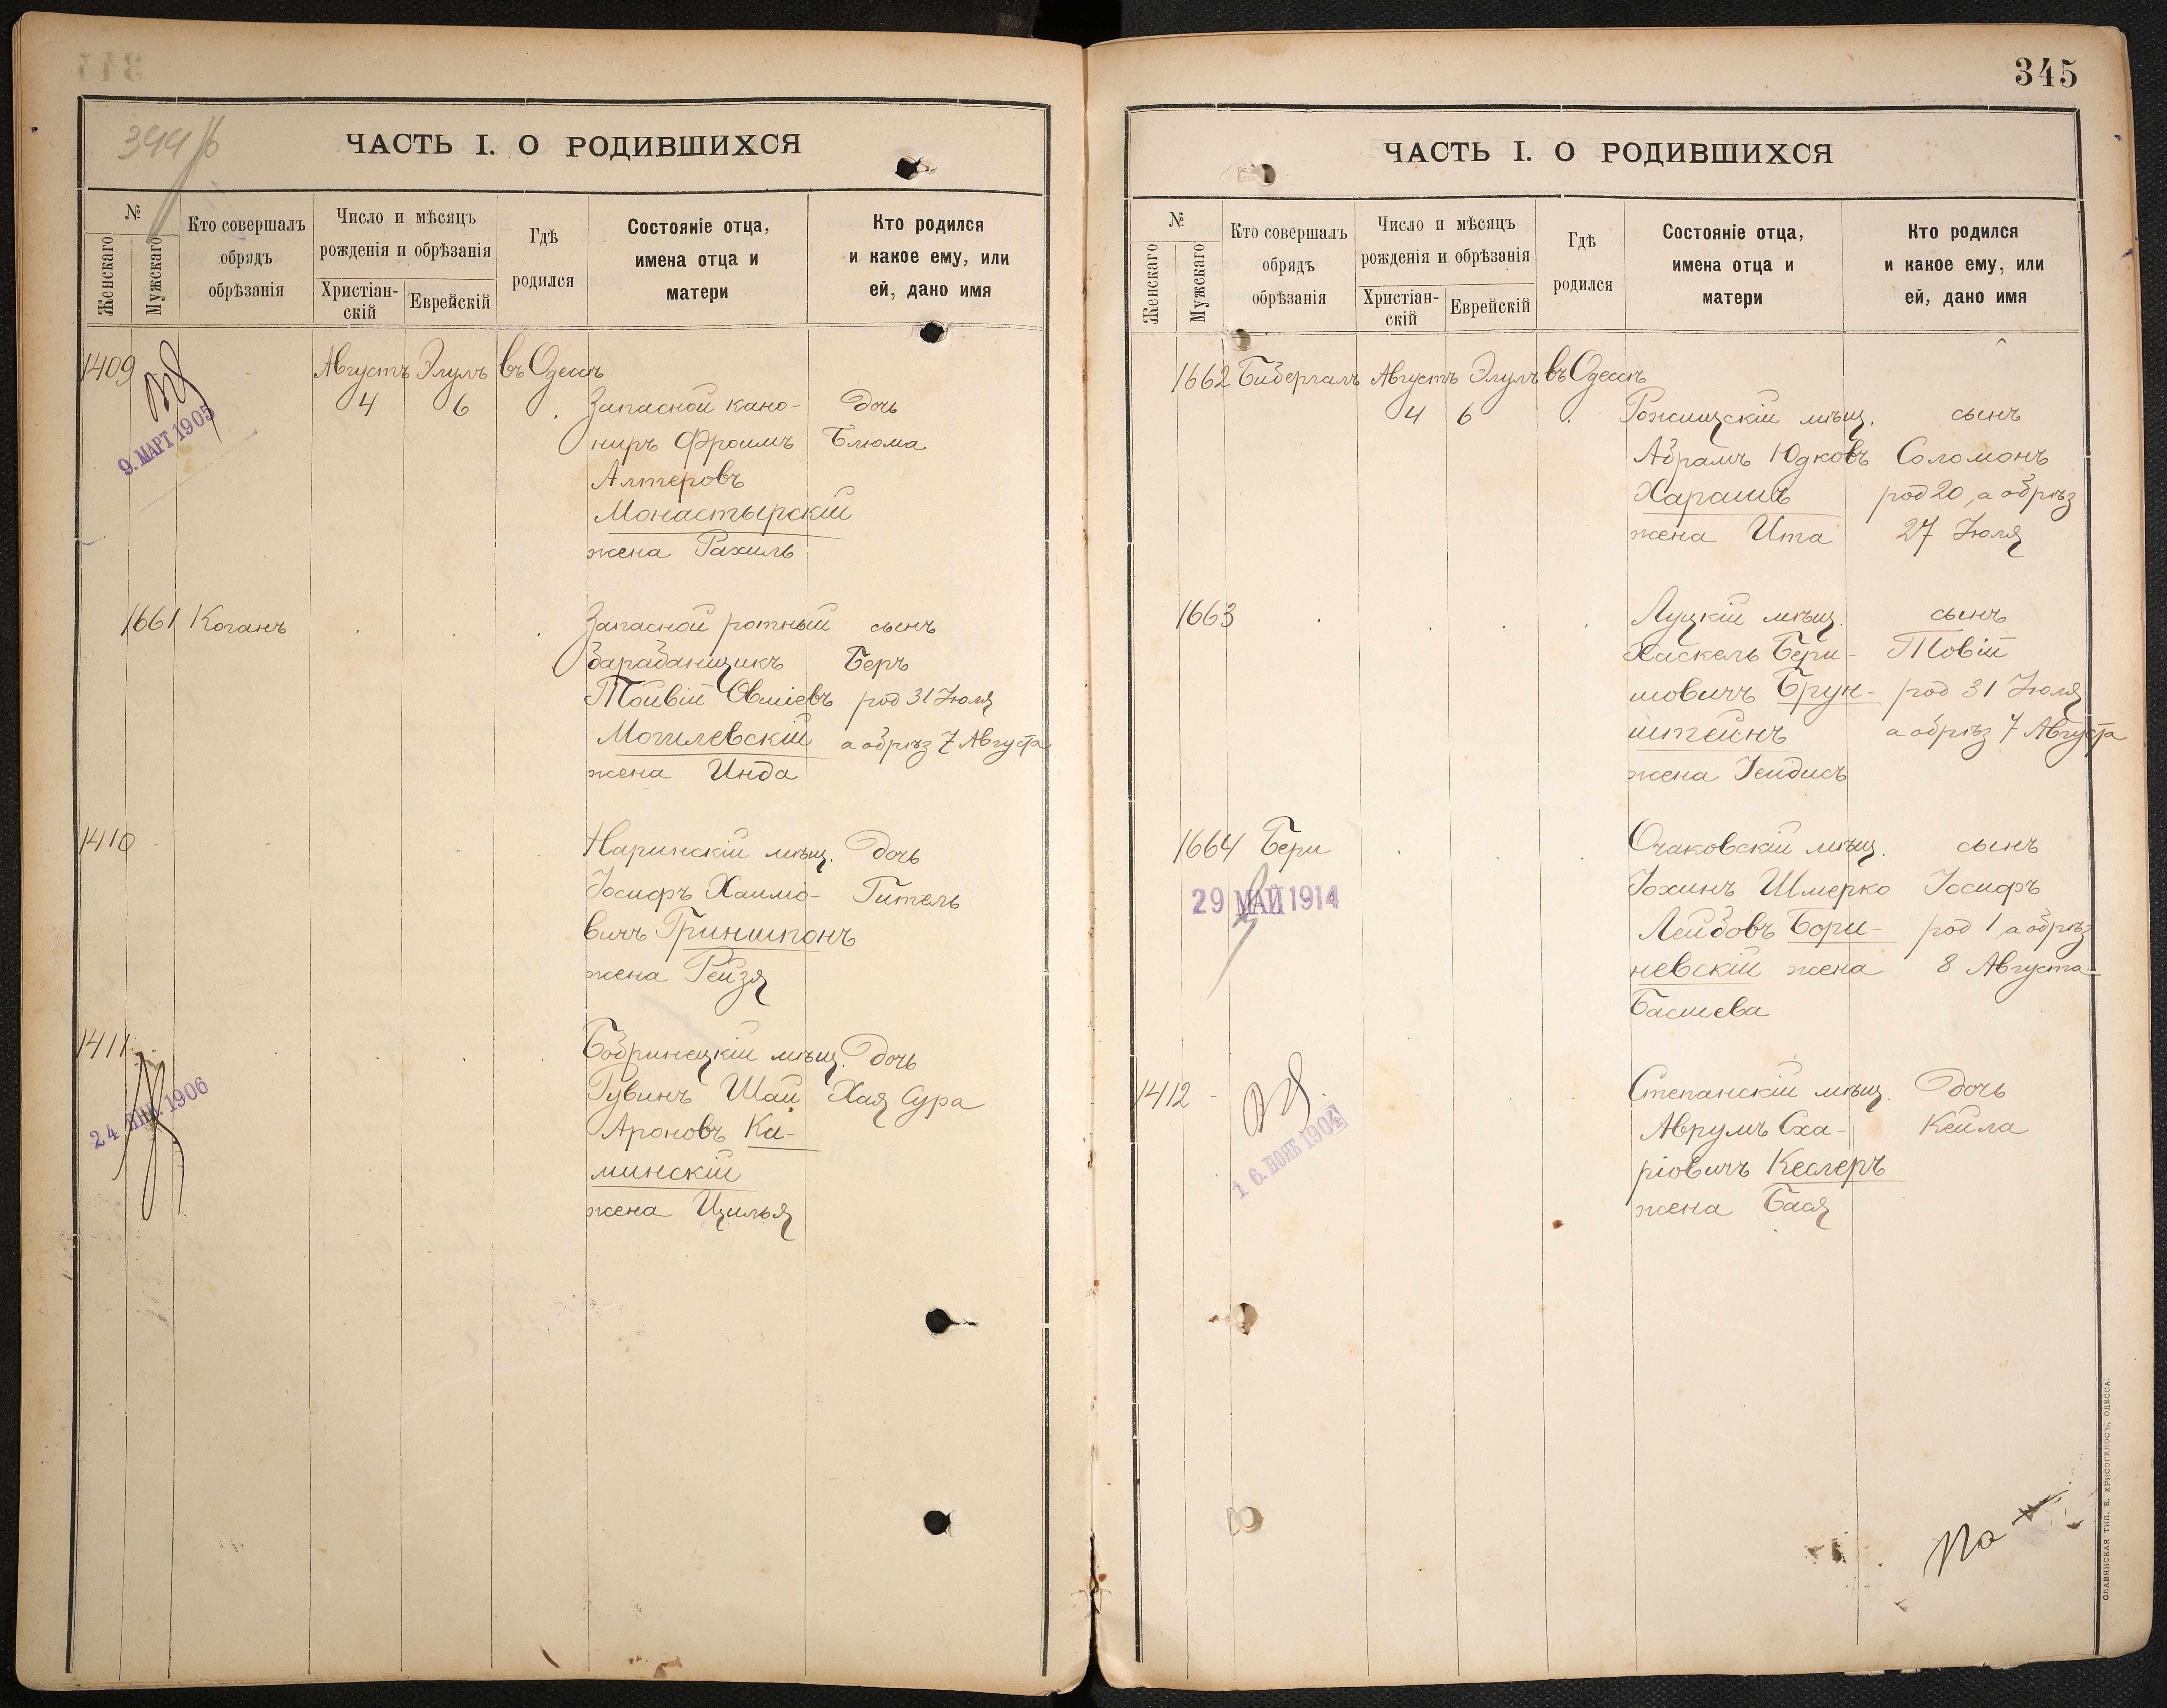 ЧАСТЬ I. О РОДИВШИХСЯ
№
Женскаго
Мужскаго
Кто совершалъ
обрядъ
обрѣзанія
Число и мѣсяцъ
рожденія и обрѣзанія
Христіан-
скій
Еврейскій
Гдѣ
родился
Состояніе отца,
имена отца и
матери
Кто родился
и какое ему, или
ей, дано имя
1409 Августъ Элулъ въ Одессѣ
4 6 Запасной кано- дочь
ниръ Фроимъ Блюма
Алтеровъ
Монастырскій
жена Рахиль
9. МАРТ 1905
1661 Коганъ Запасной ротный сынъ
барабанщикъ Беръ
Тойвій Овшіевъ род 31 Іюля
Могилевскій а обрѣз 7 Августа
жена Инда
1410 Наринскій мѣщ. дочь
Іосифъ Хаимо- Гитель
вичъ Гриншпонъ
жена Рейзя
1411 Бобринецкій мѣщ. дочь
Рувинъ Шая Хая Сура
Ароновъ Ка-
минскій
жена Цилья
24 ЯНВ. 1906
345
ЧАСТЬ I. О РОДИВШИХСЯ
№
Женскаго
Мужскаго
Кто совершалъ
обрядъ
обрѣзанія
Число и мѣсяцъ
рожденія и обрѣзанія
Христіан-
скій
Еврейскій
Гдѣ
родился
Состояніе отца,
имена отца и
матери
Кто родился
и какое ему, или
ей, дано имя
1662 Бибергалъ Августъ Элулъ въ Одессѣ
4 6 Рожищскій мѣщ. сынъ
Абрамъ Юдковъ Соломонъ
Харашъ род 20, а обрѣз
жена Ита 27 Іюля
1663 Луцкій мѣщ. сынъ
Хаскель Бери- Товій
шовичъ Брун- род 31 Іюля
штейнъ а обрѣз 7 Августа
жена Іейдисъ
1664 Бери Очаковскій мѣщ. сынъ
29 МАЙ 1914
Іохинъ Шмерко Іосифъ
Лейбовъ Бори- род 1, а обрѣз
невскій жена 8 Августа
Басшева
1412 Степанскій мѣщ. дочь
Аврумъ Сха- Кейла
ріовичъ Кеслеръ
жена Бася
16. НОЯБ 1904
СЛАВЯНСКАЯ ТИП. Е. ХРИСОГЕЛОСЪ, ОДЕССА.